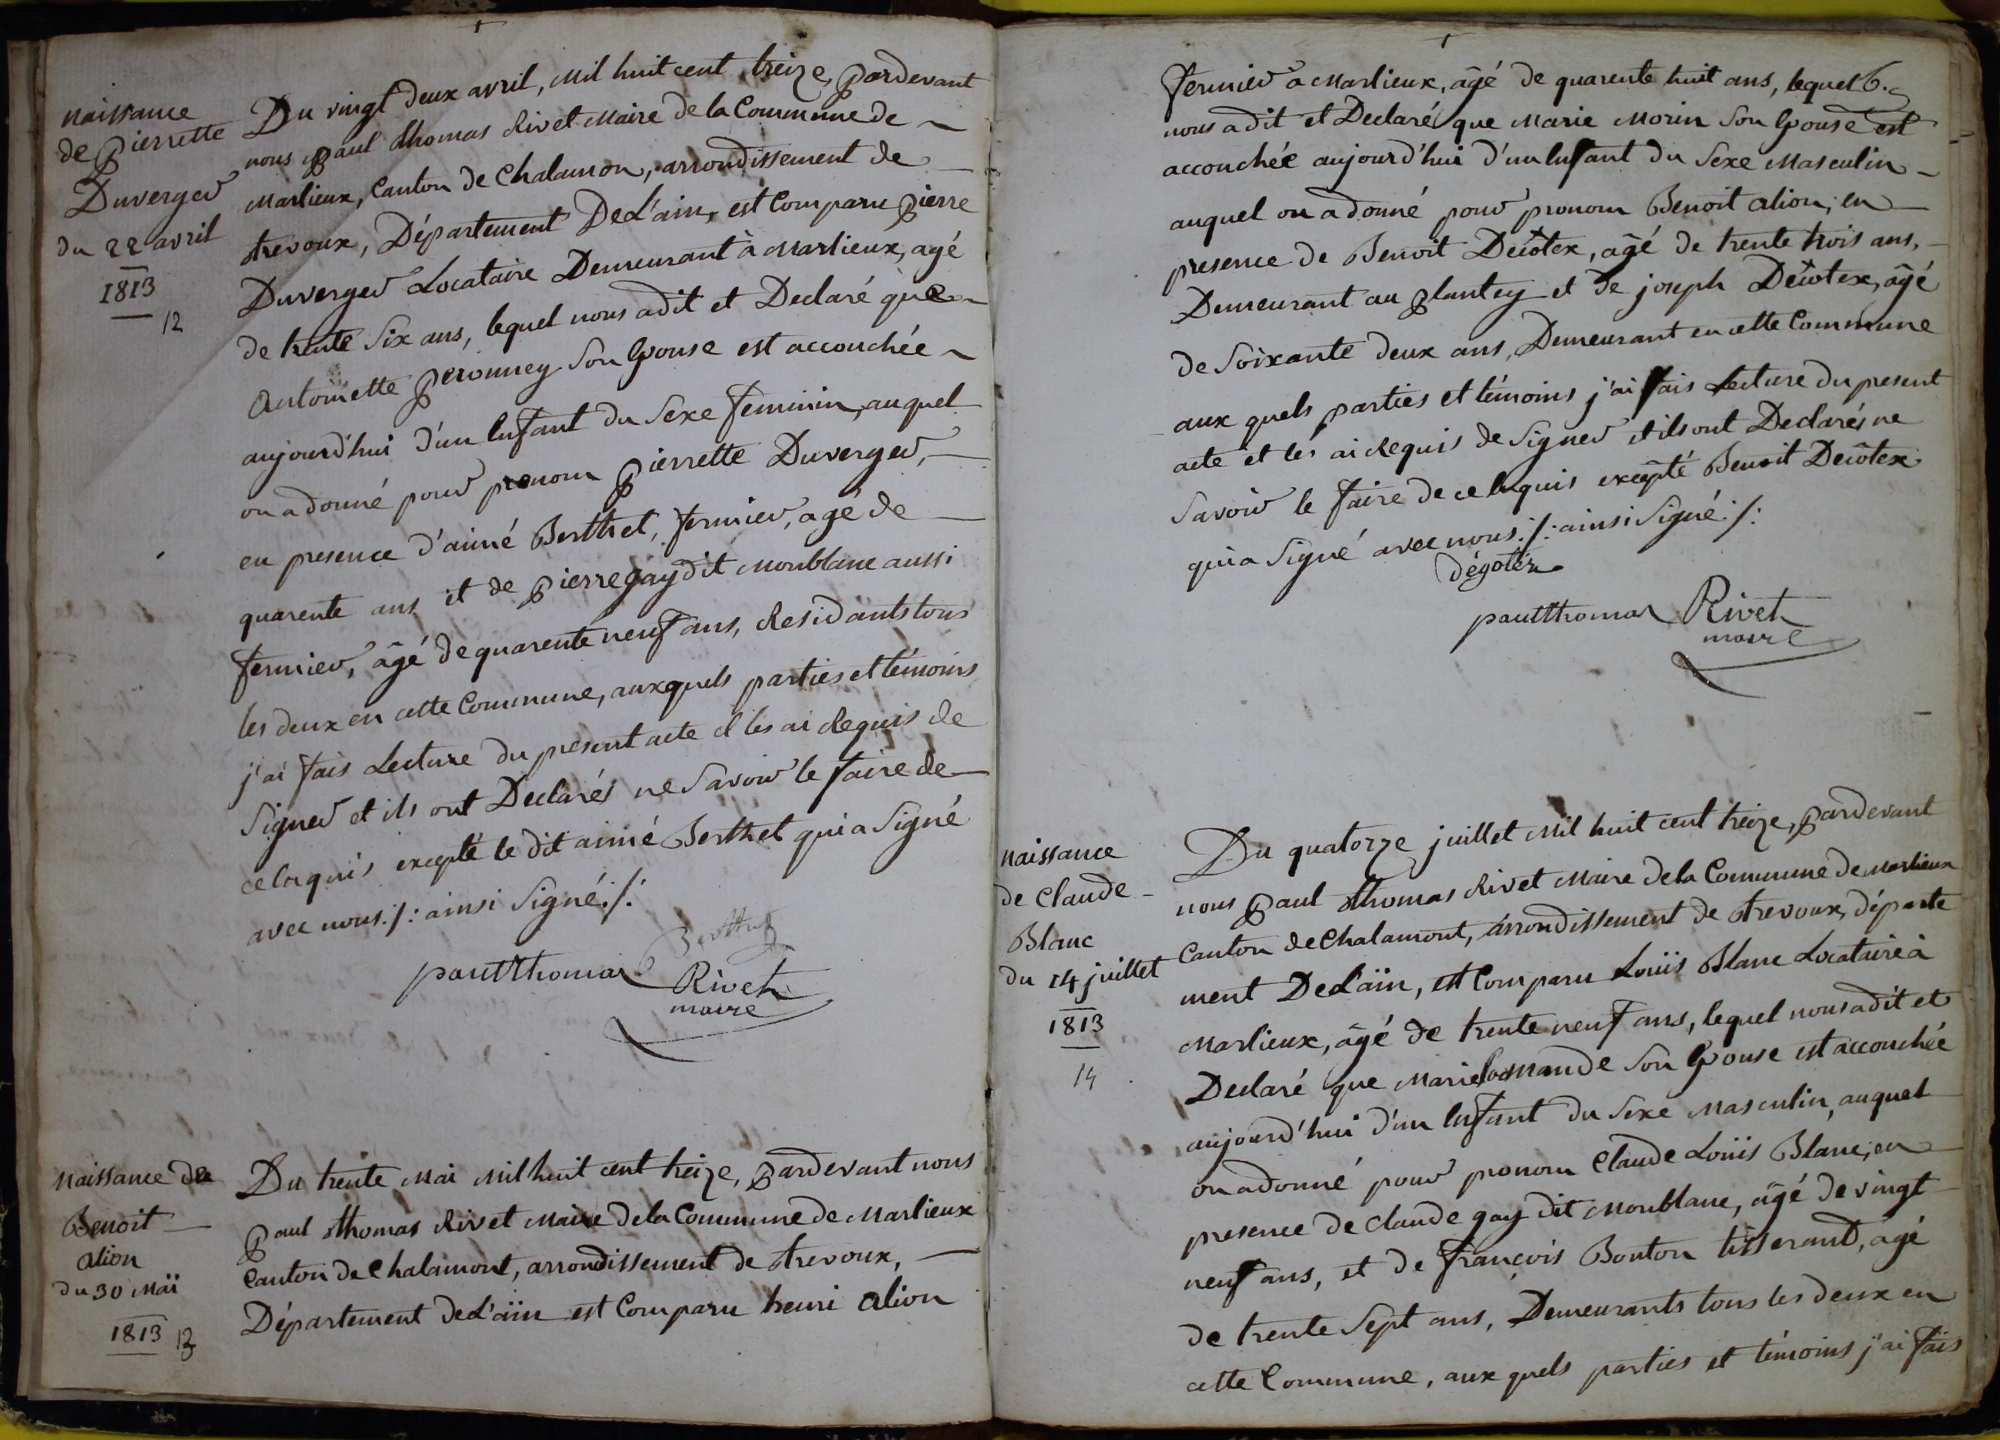 Naissance
de Pierrette
Duverger
du 22 avril
1813
12
Du vingt deux avril, Mil huit cent treize, Pardevant
nous Paul Thomas Rivet Maire de la Commune de
Marlieux, Canton de Chalamon, arrondissement de
trevoux, Département De L'ain, est Comparu Pierre
Duverger Locataire Demeurant à Marlieux, agé
de trente Six ans, lequel nous a dit et Declaré que
Antoinette Peronney Son Epouse est accouchée
aujourd'hui d'un Enfant du Sexe feminin, auquel
on a donné pour prenom Pierrette Duverger,
en presence d'aimé Berthet, fermier, agé de
quarente ans et de Pierre gay dit Monblanc aussi
fermier, âgé de quarente neuf ans, Residants tous
les deux en cette Commune, auxquels parties et témoins
j'ai fais Lecture du present acte et les ai Requis de
Signer et ils ont Declarés ne Savoir le faire de
ce Enquis excepté le dit aimé Berthet qui a Signé
avec nous ./: ainsi Signé ./:
Berthet
paul thomas Rivet
maire
Naissance de
Benoit
Alion
du 30 Mai
1813 13
Du trente Mai Mil huit cent treize, Pardevant nous
Paul Thomas Rivet Maire de la Commune de Marlieux
Canton de Chalamont, arrondissement de trevoux,
Département de L'ain est Comparu henri Alion
6.
fermier a Marlieux, âgé de quarente huit ans, lequel
nous a dit et Declaré que Marie Morin Son Epouse est
accouchée aujourd'hui d'un Enfant du Sexe Masculin
auquel on a donné pour pronom Benoit Alion, en
presence de Benoit Decotex, âgé de trente trois ans,
Demeurant au Plantey et de joseph Decotex, âgé
de Soixante deux ans, Demeurant en cette Commune
aux quels parties et témoins j'ai fais Lecture du present
acte et les ai Requis de Signer et ils ont Declarés ne
Savoir le faire de ce Enquis excepté Benoit Decôtex
qui a Signé avec nous ./: ainsi Signé ./:
Dégotéx
paul thomas Rivet
maire
Naissance
de Claude
Blanc
du 14 juillet
1813
14
Du quatorze juillet Mil huit cent treize, Pardevant
nous Paul Thomas Rivet Maire de la Commune de Marlieux
Canton de Chalamont, arrondissement de trevoux, départe
ment De L'ain, est Comparu Louis Blanc Locataire à
Marlieux, âgé de trente neuf ans, lequel nous a dit et
Declaré que Marie Son Epouse est accouchée
aujourd'hui d'un Enfant du Sexe Masculin, auquel
on a donné pour pronom Claude Louis Blanc, en
presence de Claude gay dit Monblanc, âgé de vingt
neuf ans, et de françois Bonton tisserand, âgé
de trente Sept ans, Demeurants tous les deux en
cette Commune, aux quels parties et témoins j'ai fais